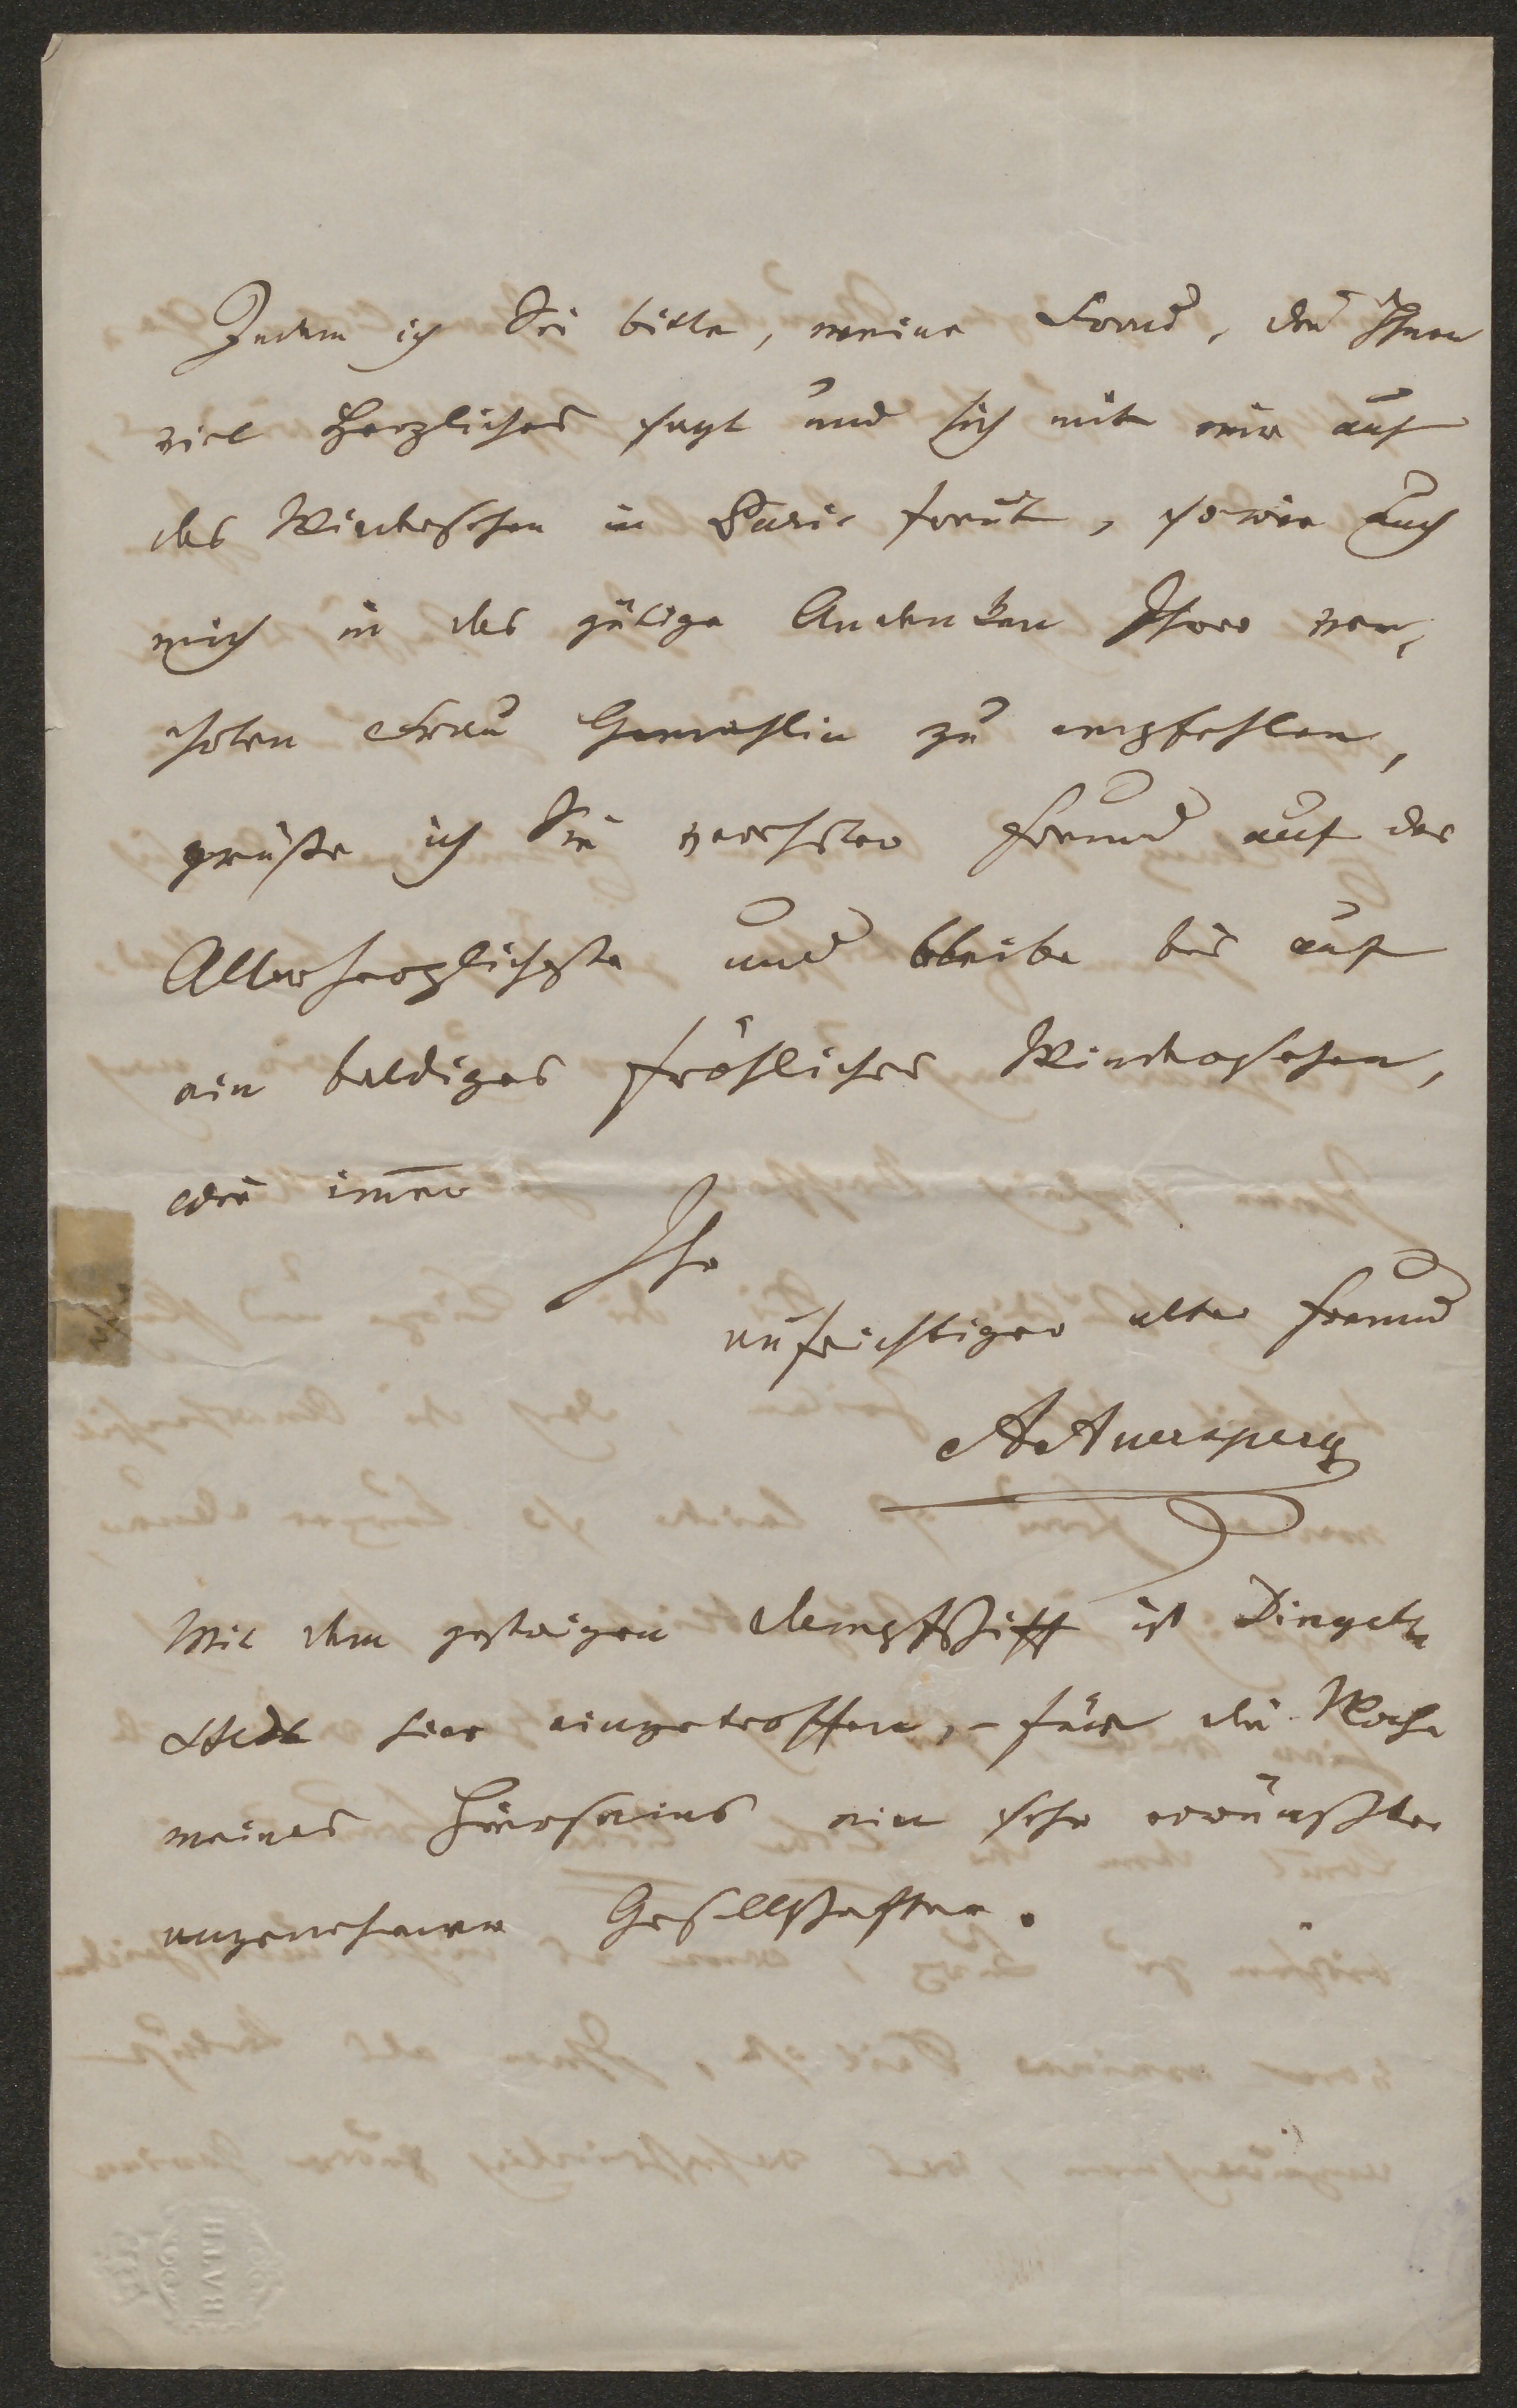 Indem ich Sie bitte, meine Frau, die Ihnen
viel Herzliches sagt und sich mit mir auf
das Wiedersehen in Paris freut, sowie auch
mich in das gütige Andenken Ihrer ver-
ehrten Frau Gemahlin zu empfehlen,
grüße ich Sie verehrter Freund auf das
Allerherzlichste und bleibe bis auf
ein baldiges fröhliches Wiedersehen,
wie im̅er
Ihr
aufrichtiger alter Freund
AAuersperg
Mit dem gestrigen Dampfschiff ist Dingel-
stedt hier eingetroffen, – für die Woche
meines Hierseins ein sehr erwünschter
angenehmer Gesellschafter.
BATH